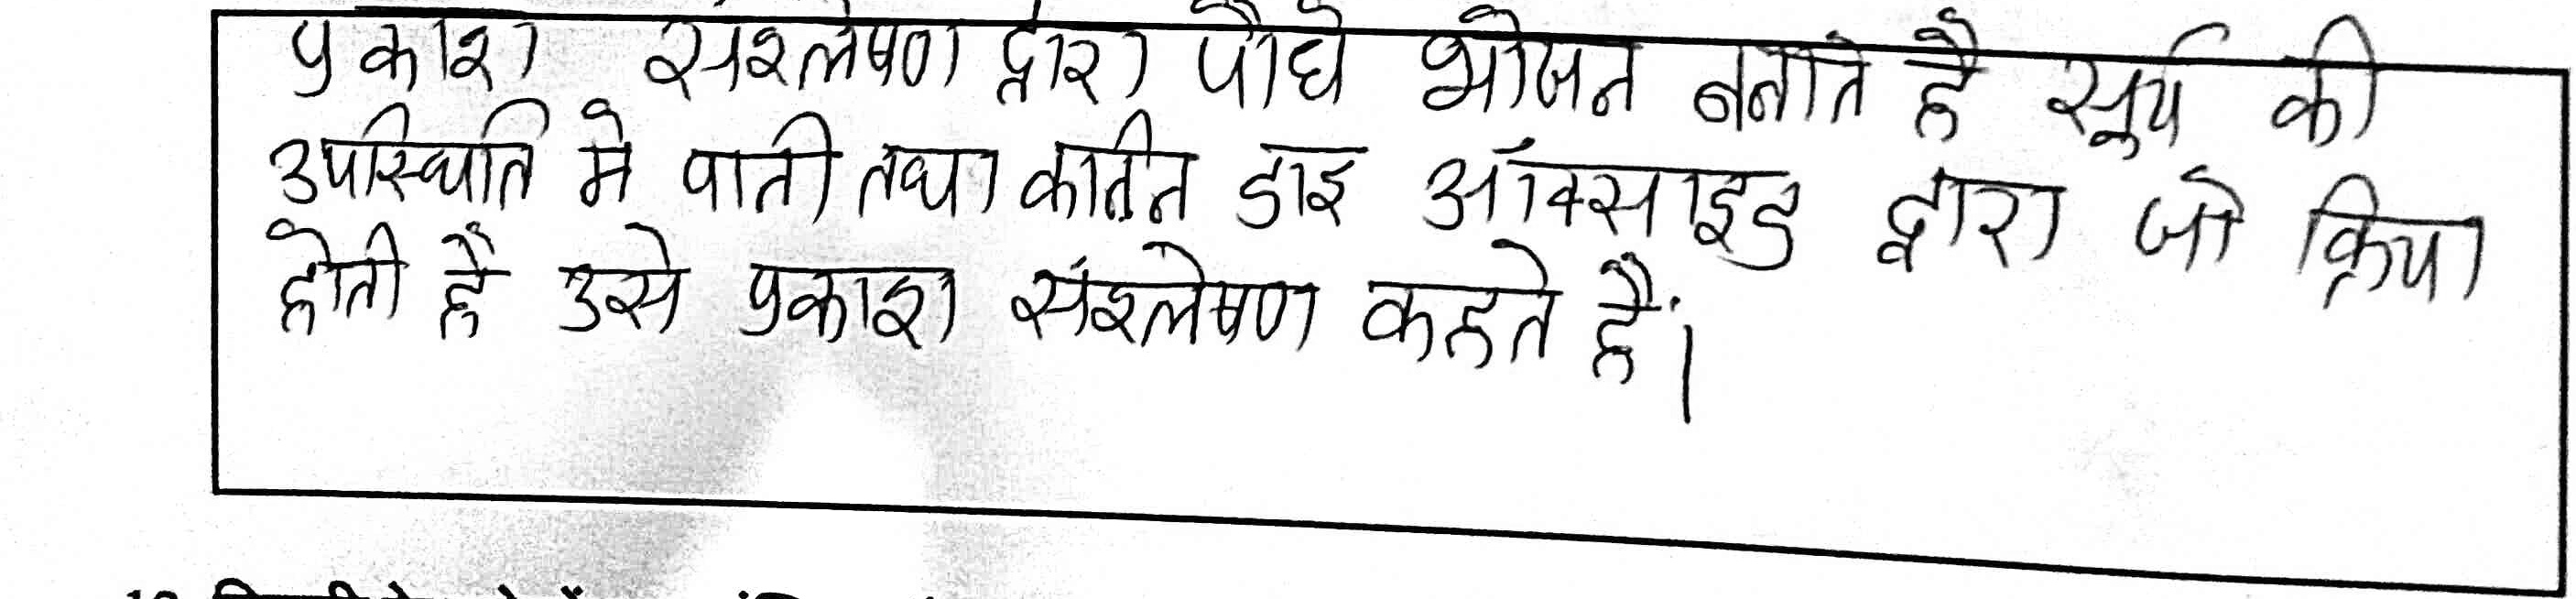 प्रकाश संश्लेषण द्वारा पौधे भोजन बनाते है सूर्य की
उपस्थिति मे पानी तथा कार्बन डाइ ऑक्साइड द्वारा जो क्रिया
होती है उसे प्रकाश संश्लेषण कहते है।